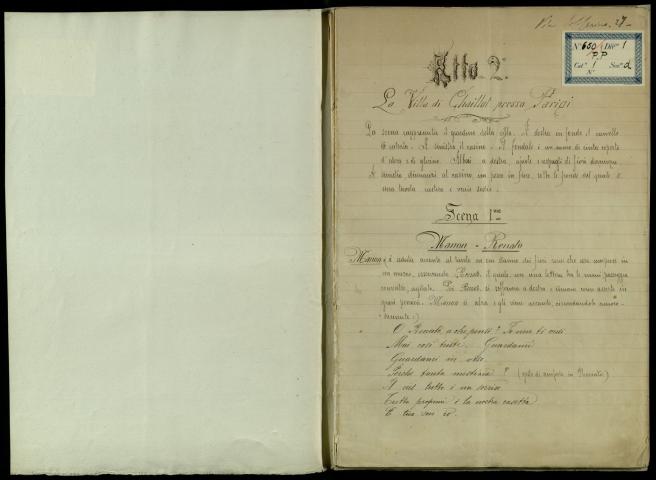 Via 27
N° 650 Div° 1
P.P.
Cat° 1 Sem° d
N°
Atto 2°
La Villa di Chaillot presso Parigi
La scena rappresenta il giardino della villa. A destra in fondo il cancello
di entrata. A sinistra il casino. Il fondale è un muro di cinta coperto
d'edera e di glicine. Alberi a destra, ajuole e cespugli di fiori dovunque.
A sinistra, dinnanzi al casino, un pesco in fiore, sotto le fronde del quale è
una tavola rustica e varie sedie.
Scena 1ma
Manon - Renato
Manon (è seduta accanto al tavolo su cui stanno dei fiori recisi che essa compone in
un mazzo, osservando Renato, il quale, con una lettera tra le mani passeggia
concentrato, agitato. Poi Renato si sofferma a destra e rimane come assorto in
gravi pensieri. Manon si alza e gli viene accanto, circondandolo amoro-
samente:)
O Renato, a che pensi? Tu non ti vedi
Mai così triste. Guardami
Guardami in viso.
Perchè tanta mestizia? (gesto di in Renato)
A noi tutto è un sorriso
Tutto propizio è la nostra casetta
E tua son io.